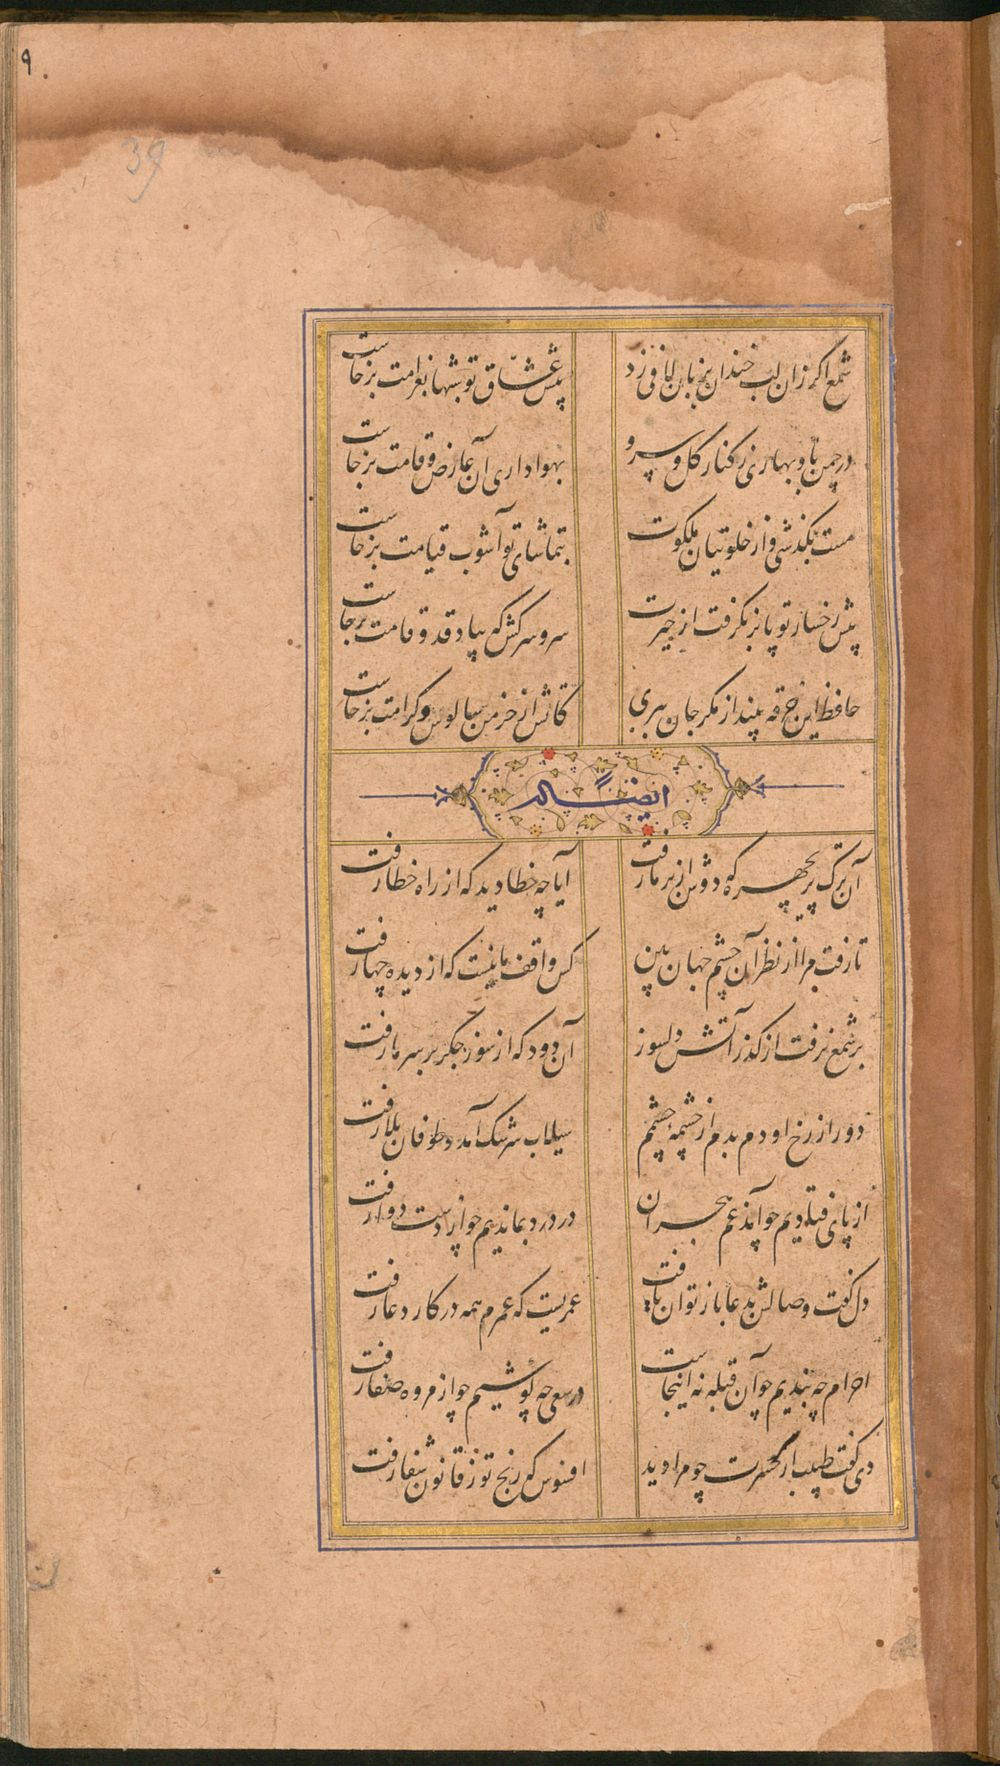 ۹
39
شمع اگر زان لب خندان بزبان لافی زد
پیش عشاق تو شبها بغرامت برخاست
در چمن باد بهاری ز کنار گل و سرو
بهواداری آن عارض و قامت برخاست
مست بگذشتی و از خلوتیان ملکوت
بتماشای تو آشوب قیامت برخاست
پیش رخسار تو پا بر نگرفت از حیرت
سرو سرکش که بیاد قد و قامت برخاست
حافظ این خرقه بینداز مگر جان ببری
کاتش از خرمن سالوس و کرامت برخاست
ایضا له
آن ترک پریچهره که دوش از بر ما رفت
آیا چه خطا دید که از راه خطا رفت
تا رفت مرا از نظر آن چشم جهان بین
کس واقف ما نیست که از دیده چها رفت
بر شمع نرفت از گذر آتش دلسوز
آن دود که از سوز جگر بر سر ما رفت
دور از رخ او دم بدم از چشمه چشمم
سیلاب سرشک آمد و طوفان بلا رفت
از پای فتادیم چو آمد غم هجران
در درد بماندیم چو از دست دوا رفت
دل گفت وصالش بدعا باز توان یافت
عمریست که عمرم همه در کار دعا رفت
احرام چه بندیم چو آن قبله نه اینجاست
در سعی چه کوشیم چو از مروه صفا رفت
دی گفت طبیب از سر حسرت چو مرا دید
افسوس که رنج تو ز قانون شفا رفت